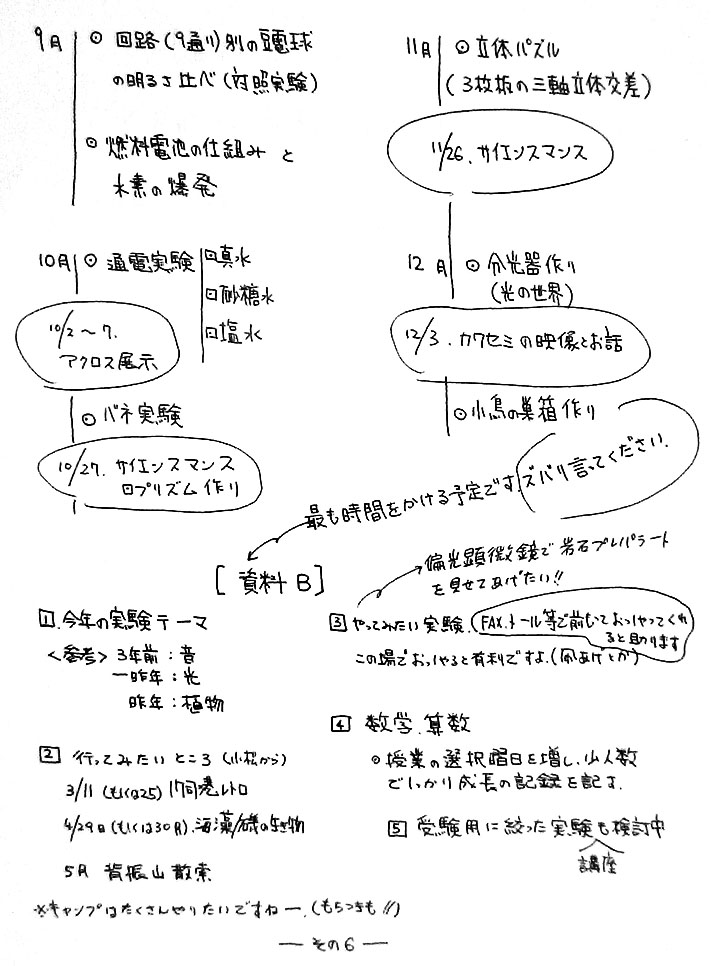 9月
⊙ 回路(9通り)別の豆電球
の明るさ比べ(対照実験)
⊙ 燃料電池の仕組みと
水素の爆発
10月 ⊙ 通電実験
□真水
□砂糖水
□塩水
10/2〜7.
アクロス展示
⊙ バネ実験
10/27. サイエンスマンス
□プリズム作り
11月 ⊙ 立体パズル
(3枚板の三軸立体交差)
11/26. サイエンスマンス
12月 ⊙ 分光器作り
(光の世界)
12/3. カワセミの映像とお話
⊙小鳥の巣箱作り
最も時間をかける予定です.ズバリ言ってください.
[資料B]
1.今年の実験テーマ
<参考> 3年前:音
一昨年:光
昨年:植物
2 行ってみたいところ (小松から)
3/11 (もしくは25) 門司港レトロ
4/29日(もしくは30日).海藻/磯の生き物
5月 背振山散索
※キャンプはたくさんやりたいですねー.(もちつきも!!)
偏光顕微鏡で岩石プレパラート
を見せてあげたい!!
3 やってみたい実験.(FAX.メール等で前もっておっしゃってくれ
ると助かります
この場でおっしゃると有利ですよ.(凧あげとか)
4 数学.算数
⊙ 授業の選択曜日を増し、少人数
でしっかり成長の記録を記す.
5 受験用に絞った実験も検討中
講座
— その6 —